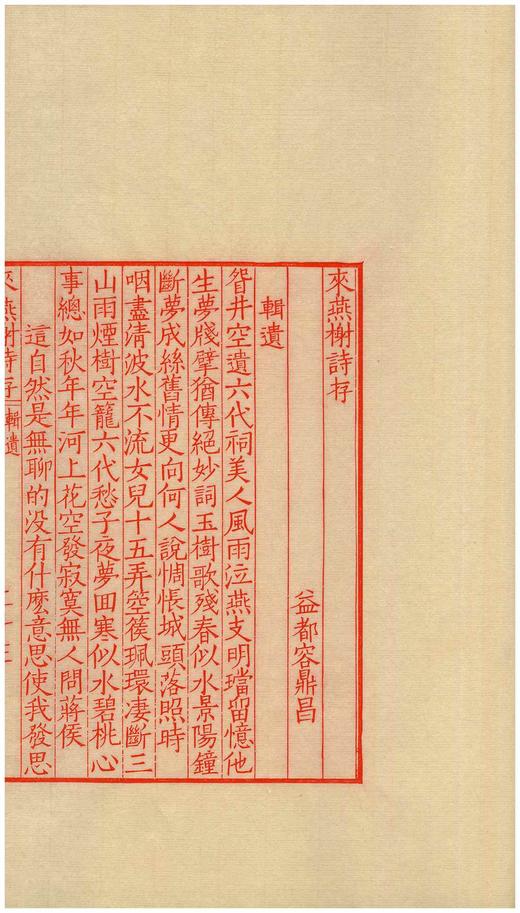 來燕榭詩存
益都容鼎昌
輯遺
眢井空遺六代祠美人風雨泣燕支明璫留憶他
生夢牋擘猶傳絕妙詞玉樹歌殘春似水景陽鐘
斷夢成絲舊情更向何人說惆悵城頭落照時
咽盡清波水不流女兒十五弄箜篌珮環凄斷三
山雨煙樹空籠六代愁子夜夢回寒似水碧桃心
事總如秋年年河上花空發寂寞無人問蔣侯
這自然是無聊的没有什麽意思使我發思
來燕榭詩存 輯遺